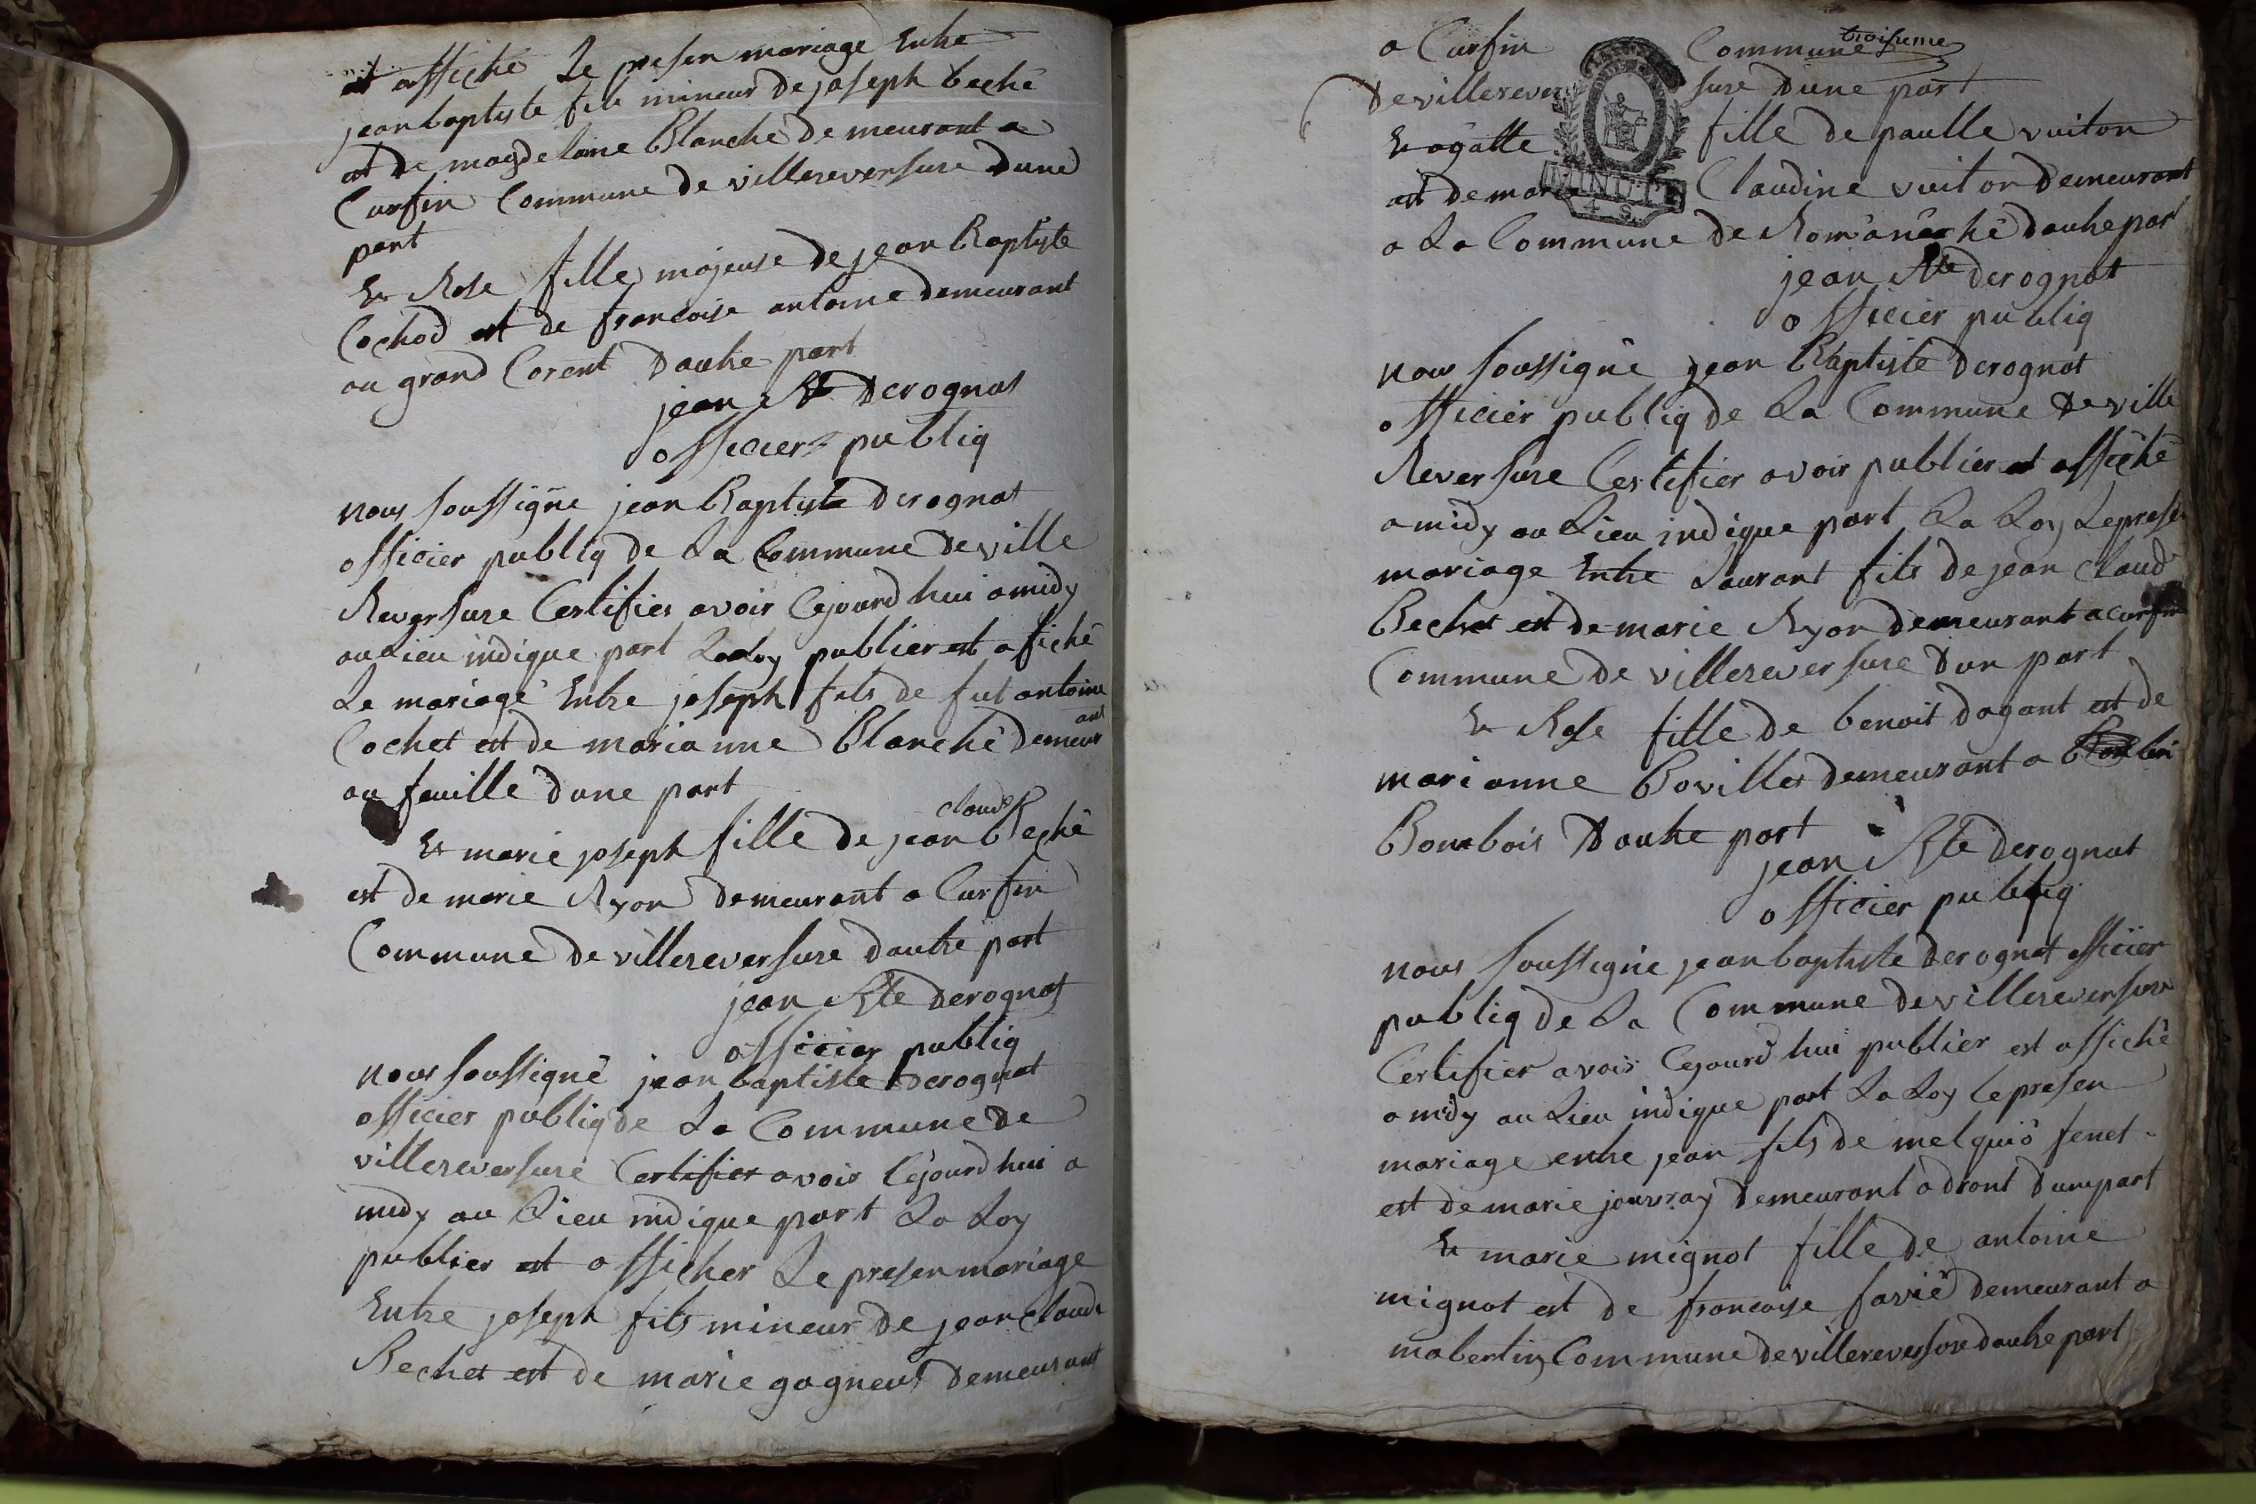 et affiché Le presen mariage Entre
jean baptiste fils mineur de joseph beché
et de magdelaine Blanche demeurant a
Curfin Commune de villereversure dune
part
Et Rose fille majeuse de jean Baptiste
Cochod et de francoise antoine demeurant
au grand Corent dautre part
jean Bte Derognat
officier publiq
nous soussigne jean Baptiste Derognat
officier publiq de La Commune de ville
Reversure Certifier avoir Cejourd hui a midy
au Lieu indique part La Loy publier et afiché
Le mariage Entre joseph fils de fut antoine
Cochet et de marianne Blanche demeur
ant
au feuille dune part
claude
Et marie joseph fille de jean Beché
est de marie Ryon demeurant a Curfin
Commune de villereversure dautre part
jean Bte Derognat
officier publiq
nous soussigné jean baptiste Derognat
officier publiq de La Commune de
villereversure Certifier avoir Cejourd hui a
midy au Lieu indique part La Loy
publier et afficher Le presen mariage
Entre joseph fils mineur de jean claude
Bechet est de marie gagneur demeurant
troisieme
a Curfin Commune
de villerever sure dune part
Et agatte fille de paulle vuiton
et de marie Claudine vuiton demeurant
MINUTE
4 S.
a La Commune de Romaneche dautre part
jean Bte derognat
officier publiq
nous soussigné jean Baptiste derognat
officier publiq de La Commune de ville
Reversure Certifier avoir publier et affiché
a midy au Lieu indique part La Loy Le presen
mariage Entre Laurant fils de jean claud
Bechet est de marie Ryon demeurant a curfin
Commune de villereversure dun part
Et Rose fille de benoit dagant est de
marianne Bovilles demeurant a
Bombois dautre part
jean Bte derognat
officier publiq
nous soussigné jean baptiste derognat officier
publiq de La Commune de villereversure
Certifier avoir Cejourd hui publier est affiché
a midy au Lieu indique part La Loy Le presen
mariage entre jean fils de melquio fenet
est de marie jouvray demeurant a dront dune part
Et marie mignot fille de antoine
mignot est de francoise favie demeurant a
mabertin Commune de villereversure dautre part